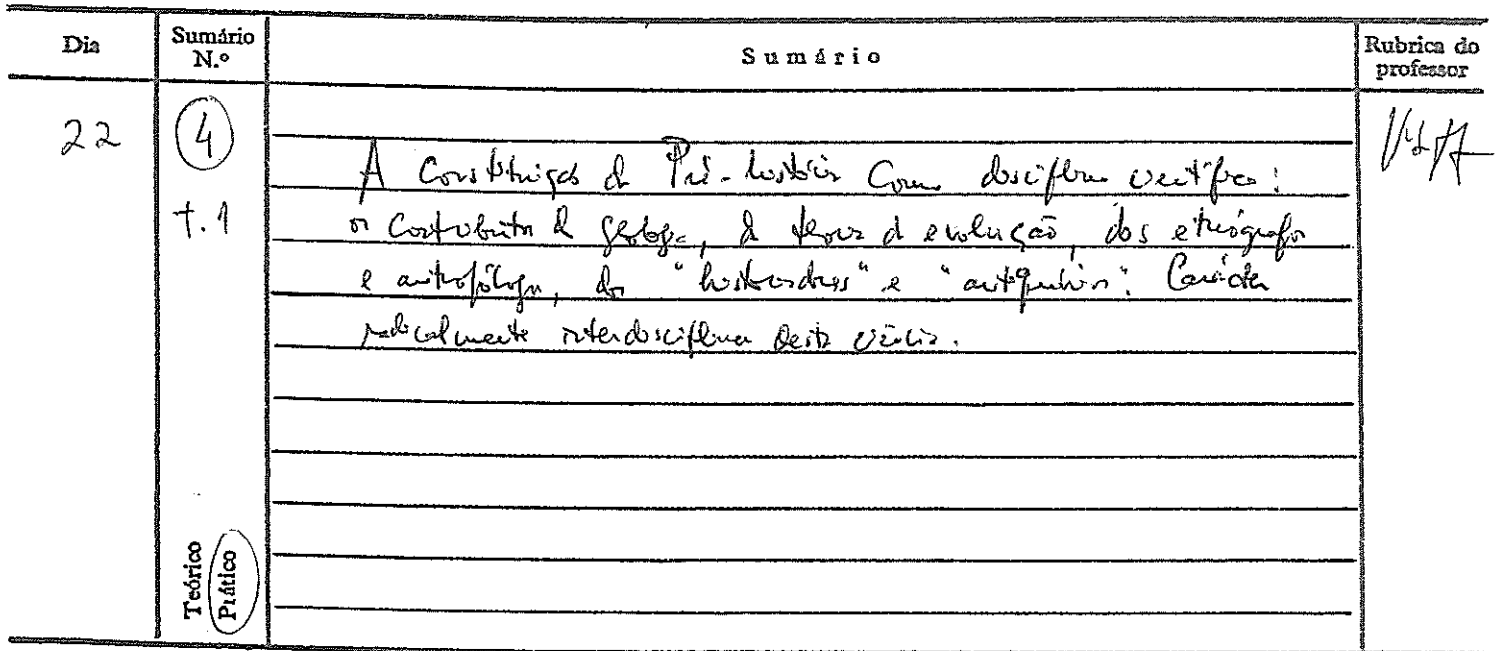 Dia
Sumário N.º
Sumário
Rubrica do professor
22
4
t. 1
A Constituição da Pré-história Como disciplina científica:
os contributos da geologia, da teoria da evolução, dos etnógrafos
e antropólogos, dos "historiadores" e "antiquários". Carácter
radicalmente interdisciplinar desta ciência.
Teórico
Prático